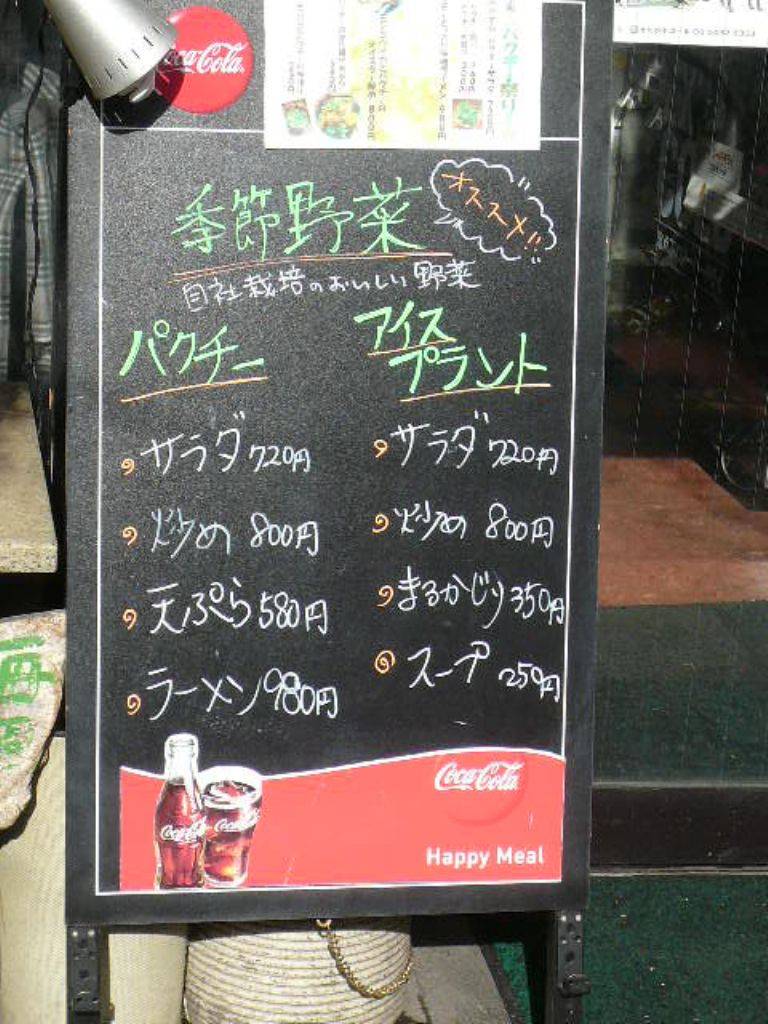 Coca-Cola
パクチー祭り
季節野菜
オススメ!!
自社栽培のおいしい野菜
パクチー
サラダ 720円
炒め 800円
天ぷら 580円
ラーメン 980円
アイス
プラント
サラダ 720円
炒め 800円
まるかじり 350円
スープ 250円
Coca-Cola
Coca-Cola
Coca-Cola
Happy Meal